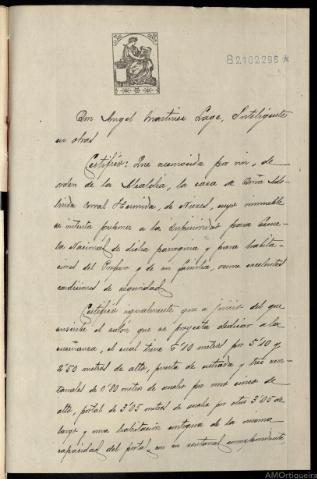 B2102296 *
Don Angel Martinez Lage, Inteligente
en obras
Certifico: Que reconocida por mí, de
orden de la Alcaldía, la casa de Doña
Corral Hermida, de Nieves, cuyo inmueble
se intenta por la para Escue-
la Nacional de dicha parroquia y para habita-
cion del Profesor y de su familia, reune excelentes
condiciones de seguridad.
Certifico igualmente que a juicio del que
suscribe el salon que se proyecta dedicar a la
enseñanza, el cual tiene 6'10 metros por 5'10 y
2'50 metros de alto, puerta de entrada y tres ven-
tanales de 0'80 metros de ancho por una
alto, portal de 3'05 metros de ancho por otros 3'05 de
largo y una habitacion antigua de la misma
capacidad del portal, en su correspondiente
AMOrtigueira